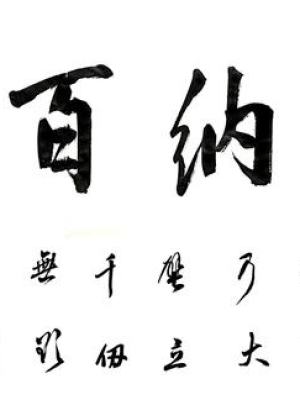 纳百
乃大
壁立
千仞
無欲